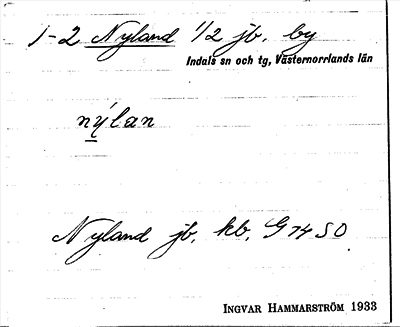 1-2 Nyland 1/2 jb. by
Indals sn och tg, Västernorrlands län
nýlan
Nyland jb, kb, G 74 SO
INGVAR HAMMARSTRÖM 1933